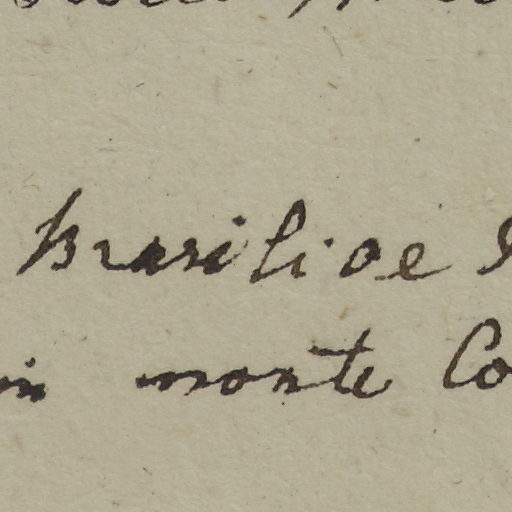 Brasiliae
in monte Co